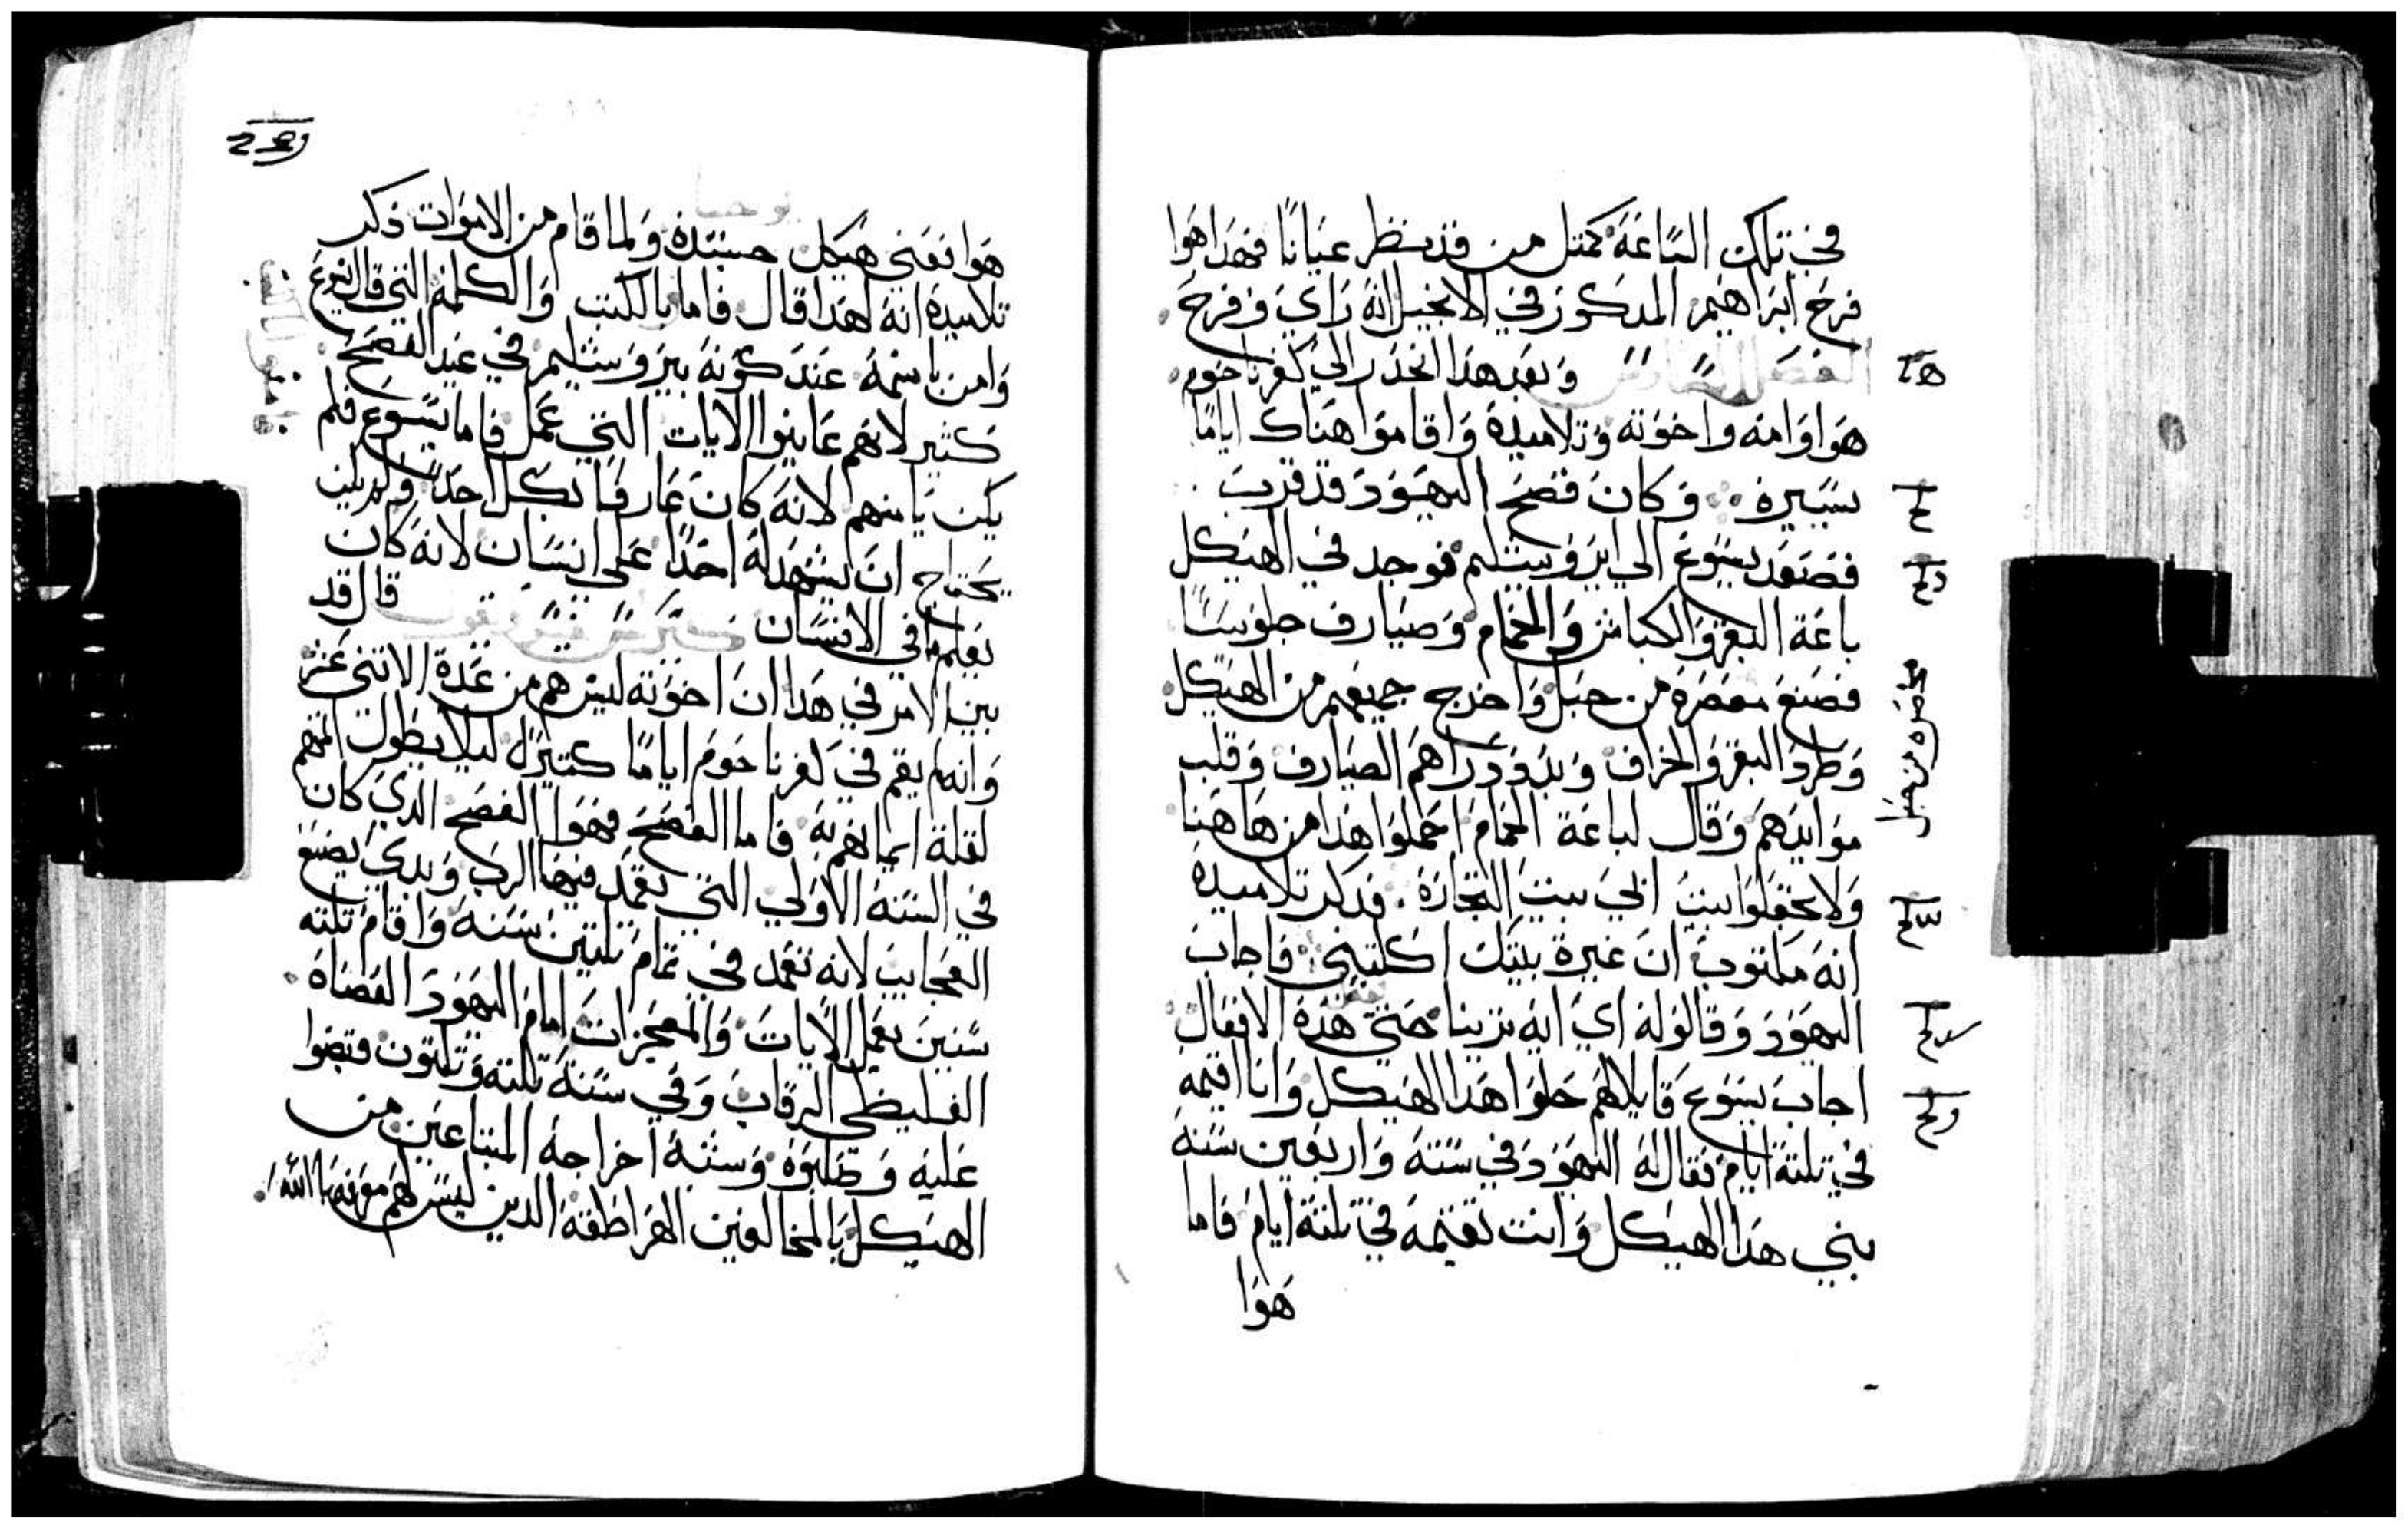 في تلك الساعة كمتل من قد نظر عيانًا فهدا هوا
فرح ابراهيم المدكور في الانجيل انه راي وفرح
الفصل السادس وبعد هدا انحدر الي كفرناحوم
هوا وامه واخوته وتلاميده واقاموا هناك ايامًا
يسيره وكان فصح اليهود قد قرب
فصعد يسوع الي ايروشليم فوجد في الهيكل
باعة البقر والكباش والحمام وصيارف جلوسًا
فصنع مخصرة من حبل واخرج جميعهم من الهيكل
وطرد البقر والخراف وبدد دراهم الصيارف وقلب
موايدهم وقال لباعة الحمام احملوا هدا من هاهنا
ولا تجعلوا بيت ابي بيت التجارة فدكر تلاميده
انه مكتوب ان غيرة بيتك اكلتني فاجاب
اليهود وقالوا له اي ايه ترينا حتي هده الافعال
اجاب يسوع قايلا لهم حلوا هدا الهيكل وانا اقيمه
في تلتة ايام فقال له اليهود في ستة واربعين سنة
بني هدا الهيكل وانت تقيمه في تلتة ايام فاما
هوا
مخصره من حبل
يوحنا
هوا فعني هيكل جسده ولما قام من الاموات دكر
تلاميده انه لهدا قال فامنوا بالكتب والكلمة التي قال يسوع
وامن باسمه عند كونه بيروشليم في عيد الفصح
كثير لانهم عاينوا الايات التي عمل فاما يسوع فلم
يكن يامنهم لانه كان عارفًا بكل احد ولم يكن
يحتاج ان يشهد له احدًا علي انسان لانه كان
يعلم ما في الانسان قال قد
بين الامر في هدا ان اخوته ليس هم من عدة الاتني عشر
وانه لم يقم في كفرناحوم ايامًا كتيرة ليلا يطول المهم
لقلة ايمانهم به فاما الفصح فهوا الفصح الدي كان
في السنة الاولي التي تعمد فيها الرب وبدي يصنع
العجايب لانه تعمد في تمام تلتين سنة واقام تلته
سنين يعمل الايات والمعجزات امام اليهود القضاه
الغليظي الرقاب وفي سنة تلته وتلتون قبضوا
عليه وصلبوه وسبه اخراجه المبتاعين من
الهيكل بالمخالفين الهراطقة الدين ليس لهم معرفه بالله